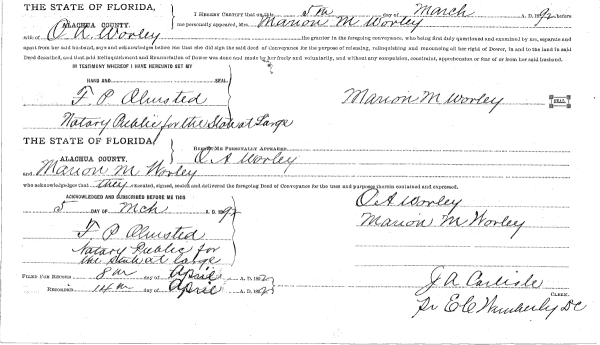 THE STATE OF FLORIDA,
ALACHUA COUNTY.
I HEREBY CERTIFY that on this 5th day of March A. D. 1892 before
me personally appeared, Mrs. Marion M Worley
wife of O. A. Worley the grantor in the foregoing conveyance, who being first duly questioned and examined by me, separate and
apart from her said husband, says and acknowledges before me that she did sign the said deed of Conveyance for the purpose of releasing, relinquishing and renouncing all her right of Dower, in and to the land in said
Deed described, and that said Relinquishment and Renunciation of Dower was done and made by her freely and voluntarily, and without any compulsion, constraint, apprehension or fear of or from her said husband.
IN TESTIMONY WHEREOF I HAVE HEREUNTO SET MY
HAND AND SEAL.
F P Olmsted
Marion M Worley SEAL
Notary Public for the State at Large
THE STATE OF FLORIDA,
ALACHUA COUNTY.
BEFORE ME PERSONALLY APPEARED O. A Worley
and Marion M Worley
who acknowledges that they executed, signed, sealed and delivered the foregoing Deed of Conveyance for the uses and purposes therein contained and expressed.
ACKNOWLEDGED AND SUBSCRIBED BEFORE ME THIS
O A Worley
5 DAY OF Mch A. D. 1892
Marion M Worley
F P Olmsted
Notary Public for
the State at large
FILED FOR RECORD 8 day of April A. D. 1892
J A Carlisle
CLERK.
RECORDED 14 day of April A. D. 1892
E C Wimberly DC